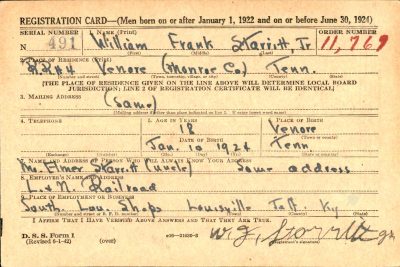 REGISTRATION CARD—(Men born on or after January 1, 1922 and on or before June 30, 1924)
SERIAL NUMBER 1. NAME (Print) ORDER NUMBER
N 491 William Frank Starritt, Jr. 11,769
(First) (Middle) (Last)
2. PLACE OF RESIDENCE (Print)
R.R #4 Venore (Monroe Co) Tenn.
(Number and street) (Town, township, village, or city) (County) (State)
[THE PLACE OF RESIDENCE GIVEN ON THE LINE ABOVE WILL DETERMINE LOCAL BOARD
JURISDICTION; LINE 2 OF REGISTRATION CERTIFICATE WILL BE IDENTICAL]
3. MAILING ADDRESS
(Same)
[Mailing address if other than place indicated on line 2. If same insert word same]
4. TELEPHONE 5. AGE IN YEARS 6. PLACE OF BIRTH
18 Venore
DATE OF BIRTH (Town or county)
Jan. 10 1924 Tenn
(Mo.) (Day) (Yr.) (State or country)
7. NAME AND ADDRESS OF PERSON WHO WILL ALWAYS KNOW YOUR ADDRESS
Mr. Elmer Starritt (uncle) Same address
8. EMPLOYER'S NAME AND ADDRESS
L & N. Railroad
9. PLACE OF EMPLOYMENT OR BUSINESS
South Lou. Shops Louisville Jeff. Ky
(Number and street or R. F. D. number) (Town) (County) (State)
I AFFIRM THAT I HAVE VERIFIED ABOVE ANSWERS AND THAT THEY ARE TRUE.
D. S. S. Form 1
(Revised 6-1-42) (over) 16—21630-2 (Registrant's signature)
W. F. Starritt Jr.